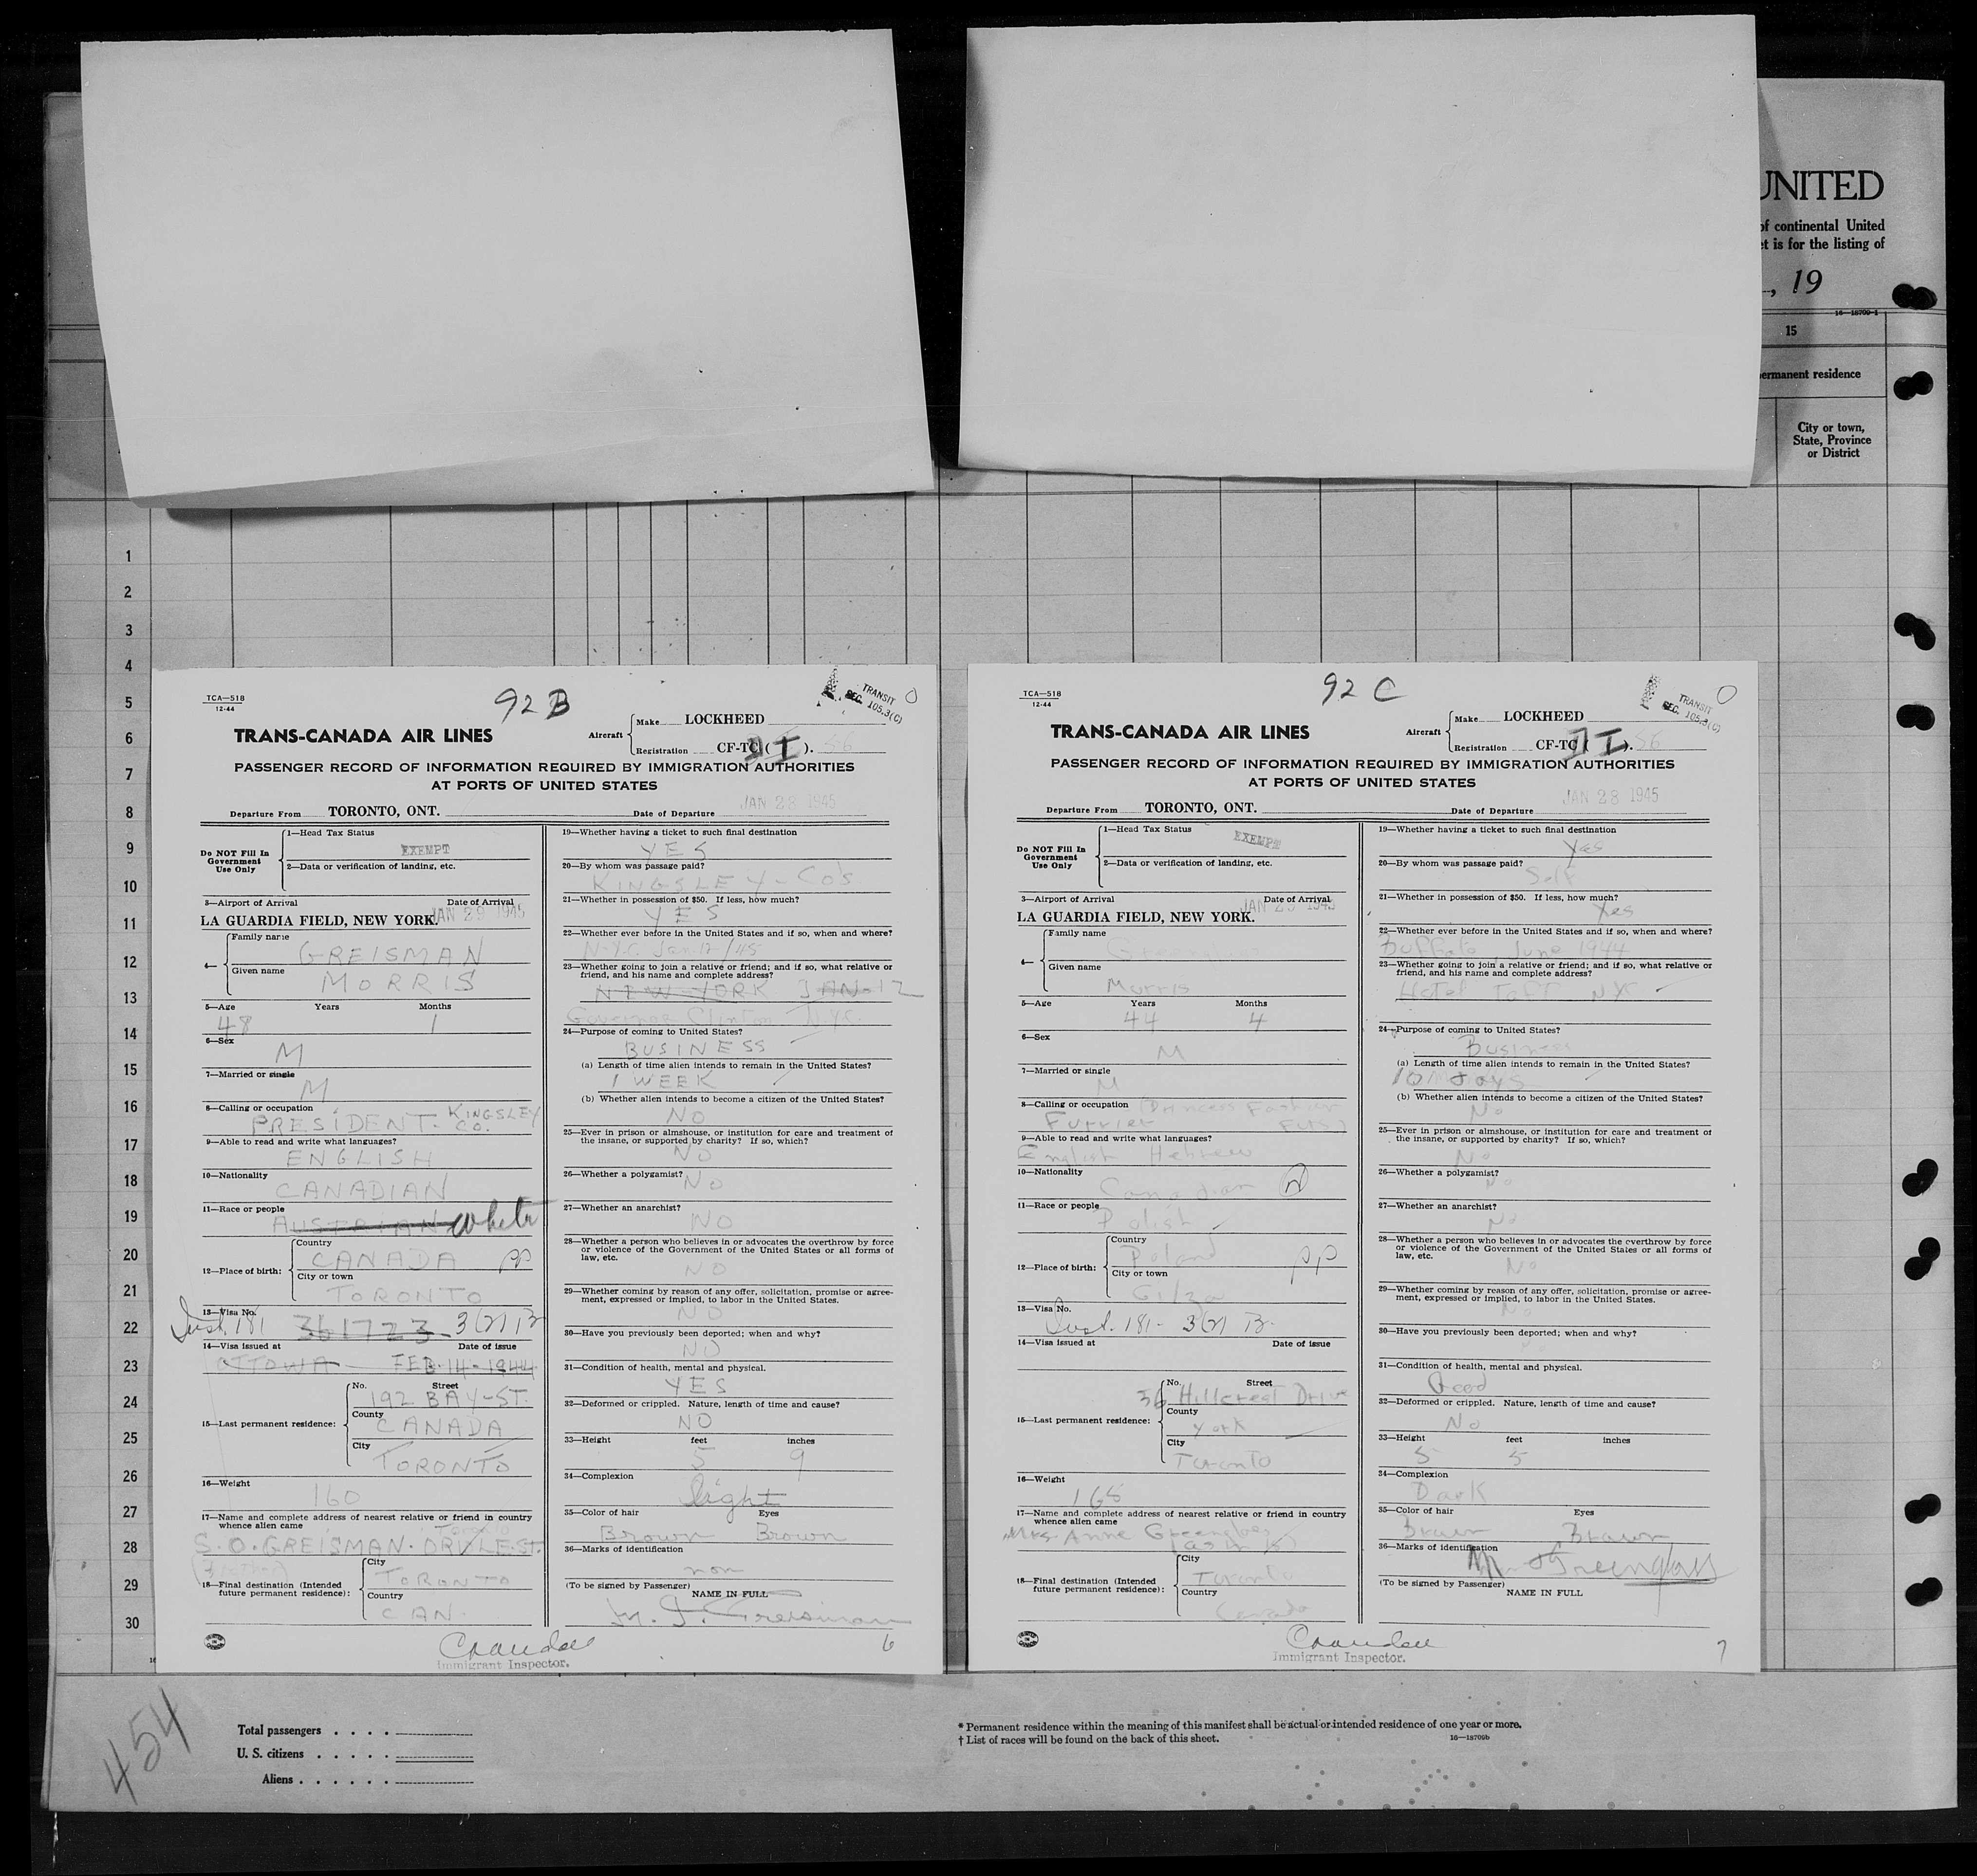 UNITED
of continental United
et is for the listing of
, 19
16—18709-1
15
ermanent residence
City or town,
State, Province
or District
1
2
3
4
5
6
7
8
9
10
11
12
13
14
15
16
17
18
19
20
21
22
23
24
25
26
27
28
29
30
TCA—518
12-44
92 B
TRANSIT
SEC. 105.3(C)
0
TRANS-CANADA AIR LINES
Aircraft
Make LOCKHEED
Registration CF-TC( I ). 56
PASSENGER RECORD OF INFORMATION REQUIRED BY IMMIGRATION AUTHORITIES
AT PORTS OF UNITED STATES
JAN 28 1945
Departure From TORONTO, ONT. Date of Departure
Do NOT Fill In
Government
Use Only
1—Head Tax Status
EXEMPT
2—Data or verification of landing, etc.
3—Airport of Arrival Date of Arrival
LA GUARDIA FIELD, NEW YORK. JAN 29 1945
4—
Family name
GREISMAN
Given name
MORRIS
5—Age Years Months
48 1
6—Sex
M
7—Married or single
M
8—Calling or occupation
PRESIDENT. KINGSLEY CO.
9—Able to read and write what languages?
ENGLISH
10—Nationality
CANADIAN
11—Race or people
AUSTRIAN White
12—Place of birth:
Country
CANADA PP
City or town
TORONTO
13—Visa No.
Inst. 181 361723 3(2) 13
14—Visa issued at Date of issue
OTTOWA FEB-14-1944
15—Last permanent residence:
No. Street
192 BAY-ST.
County
CANADA
City
TORONTO
16—Weight
160
17—Name and complete address of nearest relative or friend in country
whence alien came
Toronto
S.O. GREISMAN. ST.
18—Final destination (Intended
future permanent residence):
City
TORONTO
Country
CAN.
19—Whether having a ticket to such final destination
YES
20—By whom was passage paid?
KINGSLEY-CO'S
21—Whether in possession of $50. If less, how much?
YES
22—Whether ever before in the United States and if so, when and where?
N.Y.C. Jan 12/45
23—Whether going to join a relative or friend; and if so, what relative or
friend, and his name and complete address?
NEW YORK JAN-12
Governor Clinton N.Y.C.
24—Purpose of coming to United States?
BUSINESS
(a) Length of time alien intends to remain in the United States?
1 WEEK
(b) Whether alien intends to become a citizen of the United States?
NO
25—Ever in prison or almshouse, or institution for care and treatment of
the insane, or supported by charity? If so, which?
NO
26—Whether a polygamist?
NO
27—Whether an anarchist?
NO
28—Whether a person who believes in or advocates the overthrow by force
or violence of the Government of the United States or all forms of
law, etc.
NO
29—Whether coming by reason of any offer, solicitation, promise or agree-
ment, expressed or implied, to labor in the United States.
NO
30—Have you previously been deported; when and why?
NO
31—Condition of health, mental and physical.
YES
32—Deformed or crippled. Nature, length of time and cause?
NO
33—Height feet inches
5 9
34—Complexion
light
35—Color of hair Eyes
Brown Brown
36—Marks of identification
non
(To be signed by Passenger) NAME IN FULL
Greisman
Immigrant Inspector.
6
TCA—518
12-44
92 C
TRANSIT
SEC. 105.3(C)
0
TRANS-CANADA AIR LINES
Aircraft
Make LOCKHEED
Registration CF-TC ( I ). 56
PASSENGER RECORD OF INFORMATION REQUIRED BY IMMIGRATION AUTHORITIES
AT PORTS OF UNITED STATES
JAN 28 1945
Departure From TORONTO, ONT. Date of Departure
Do NOT Fill In
Government
Use Only
1—Head Tax Status
EXEMPT
2—Data or verification of landing, etc.
3—Airport of Arrival Date of Arrival
LA GUARDIA FIELD, NEW YORK. JAN 29 1945
4—
Family name
Given name
Morris
5—Age Years Months
44 4
6—Sex
M
7—Married or single
M
8—Calling or occupation (Princess Fashion
Furrier Furs)
9—Able to read and write what languages?
English Hebrew
10—Nationality
Canadian
11—Race or people
Polish
12—Place of birth:
Country
Poland PP
City or town
Gilza
13—Visa No.
Inst. 181- 3(2) 13.
14—Visa issued at Date of issue
15—Last permanent residence:
No. Street
56 Hillcrest Drive
County
York
City
Toronto
16—Weight
165
17—Name and complete address of nearest relative or friend in country
whence alien came
Mrs. Anne Greenglass
(as in 15)
18—Final destination (Intended
future permanent residence):
City
Toronto
Country
Canada
19—Whether having a ticket to such final destination
Yes
20—By whom was passage paid?
Self
21—Whether in possession of $50. If less, how much?
Yes
22—Whether ever before in the United States and if so, when and where?
Buffalo June 1944
23—Whether going to join a relative or friend; and if so, what relative or
friend, and his name and complete address?
Hotel Taft NYC
24—Purpose of coming to United States?
Business
(a) Length of time alien intends to remain in the United States?
10 days
(b) Whether alien intends to become a citizen of the United States?
No
25—Ever in prison or almshouse, or institution for care and treatment of
the insane, or supported by charity? If so, which?
No
26—Whether a polygamist?
No
27—Whether an anarchist?
No
28—Whether a person who believes in or advocates the overthrow by force
or violence of the Government of the United States or all forms of
law, etc.
No
29—Whether coming by reason of any offer, solicitation, promise or agree-
ment, expressed or implied, to labor in the United States.
No
30—Have you previously been deported; when and why?
31—Condition of health, mental and physical.
Good
32—Deformed or crippled. Nature, length of time and cause?
No
33—Height feet inches
5 5
34—Complexion
Dark
35—Color of hair Eyes
Brown Brown
36—Marks of identification
M. Greenglass
(To be signed by Passenger) NAME IN FULL
Immigrant Inspector.
7
454
Total passengers
U. S. citizens
Aliens
* Permanent residence within the meaning of this manifest shall be actual or intended residence of one year or more.
† List of races will be found on the back of this sheet.
16—18709b